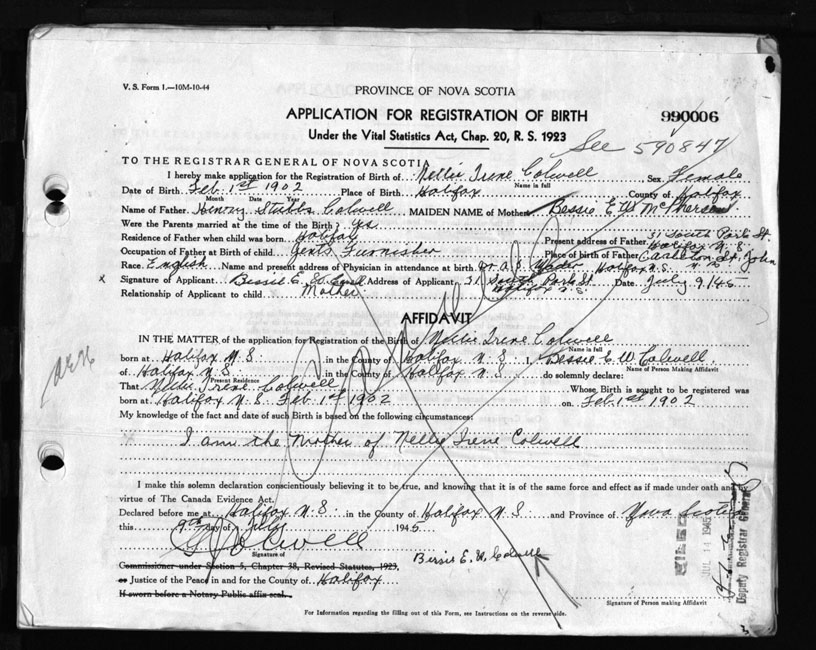 V. S. Form 1.—10M-10-44
PROVINCE OF NOVA SCOTIA
APPLICATION FOR REGISTRATION OF BIRTH
990006
Under the Vital Statistics Act, Chap. 20, R. S. 1923
See 590847
TO THE REGISTRAR GENERAL OF NOVA SCOTIA
I hereby make application for the Registration of Birth of Nellie Irene Colwell Sex Female
Name in full
Date of Birth Feb 1st 1902 Place of Birth Halifax County of Halifax
Month Date Year
Name of Father Henry Stubbs Colwell MAIDEN NAME of Mother Bessie E. W.
Were the Parents married at the time of the Birth? Yes
Residence of Father when child was born Halifax Present address of Father 51 South Park St Halifax N. S.
Occupation of Father at Birth of child Gents Furnisher Place of birth of Father Carleton St. John N B
Race English Name and present address of Physician in attendance at birth Dr A. Halifax N.S.
x Signature of Applicant Bessie E. Address of Applicant 51 South Park St Halifax N.S. Date July 9/45
Relationship of Applicant to child Mother
AFFIDAVIT
IN THE MATTER of the application for Registration of the Birth of Nellie Irene Colwell
Name in full
born at Halifax N S in the County of Halifax N. S I, Bessie E. W. Colwell
Name of Person Making Affidavit
of Halifax N. S in the County of Halifax N. S do solemnly declare:
Present Residence
That Nellie Irene Colwell Whose Birth is sought to be registered was
born at Halifax N. S Feb 1st 1902 on Feb 1st 1902
My knowledge of the fact and date of such Birth is based on the following circumstances:
x I am the Mother of Nellie Irene Colwell
I make this solemn declaration conscientiously believing it to be true, and knowing that it is of the same force and effect as if made under oath and by
virtue of The Canada Evidence Act.
Declared before me at Halifax N. S in the County of Halifax N S and Province of Nova Scotia
this 9th day of July 1945
Colwell
Signature of
Bessie E. W. Colwell
Commissioner under Section 5, Chapter 38, Revised Statutes, 1923,
or Justice of the Peace in and for the County of Halifax
If sworn before a Notary Public affix seal.
Signature of Person making Affidavit
For Information regarding the filling out of this Form, see Instructions on the reverse side.
Cancelled
FILED
JUL 14 1945
Deputy Registrar General